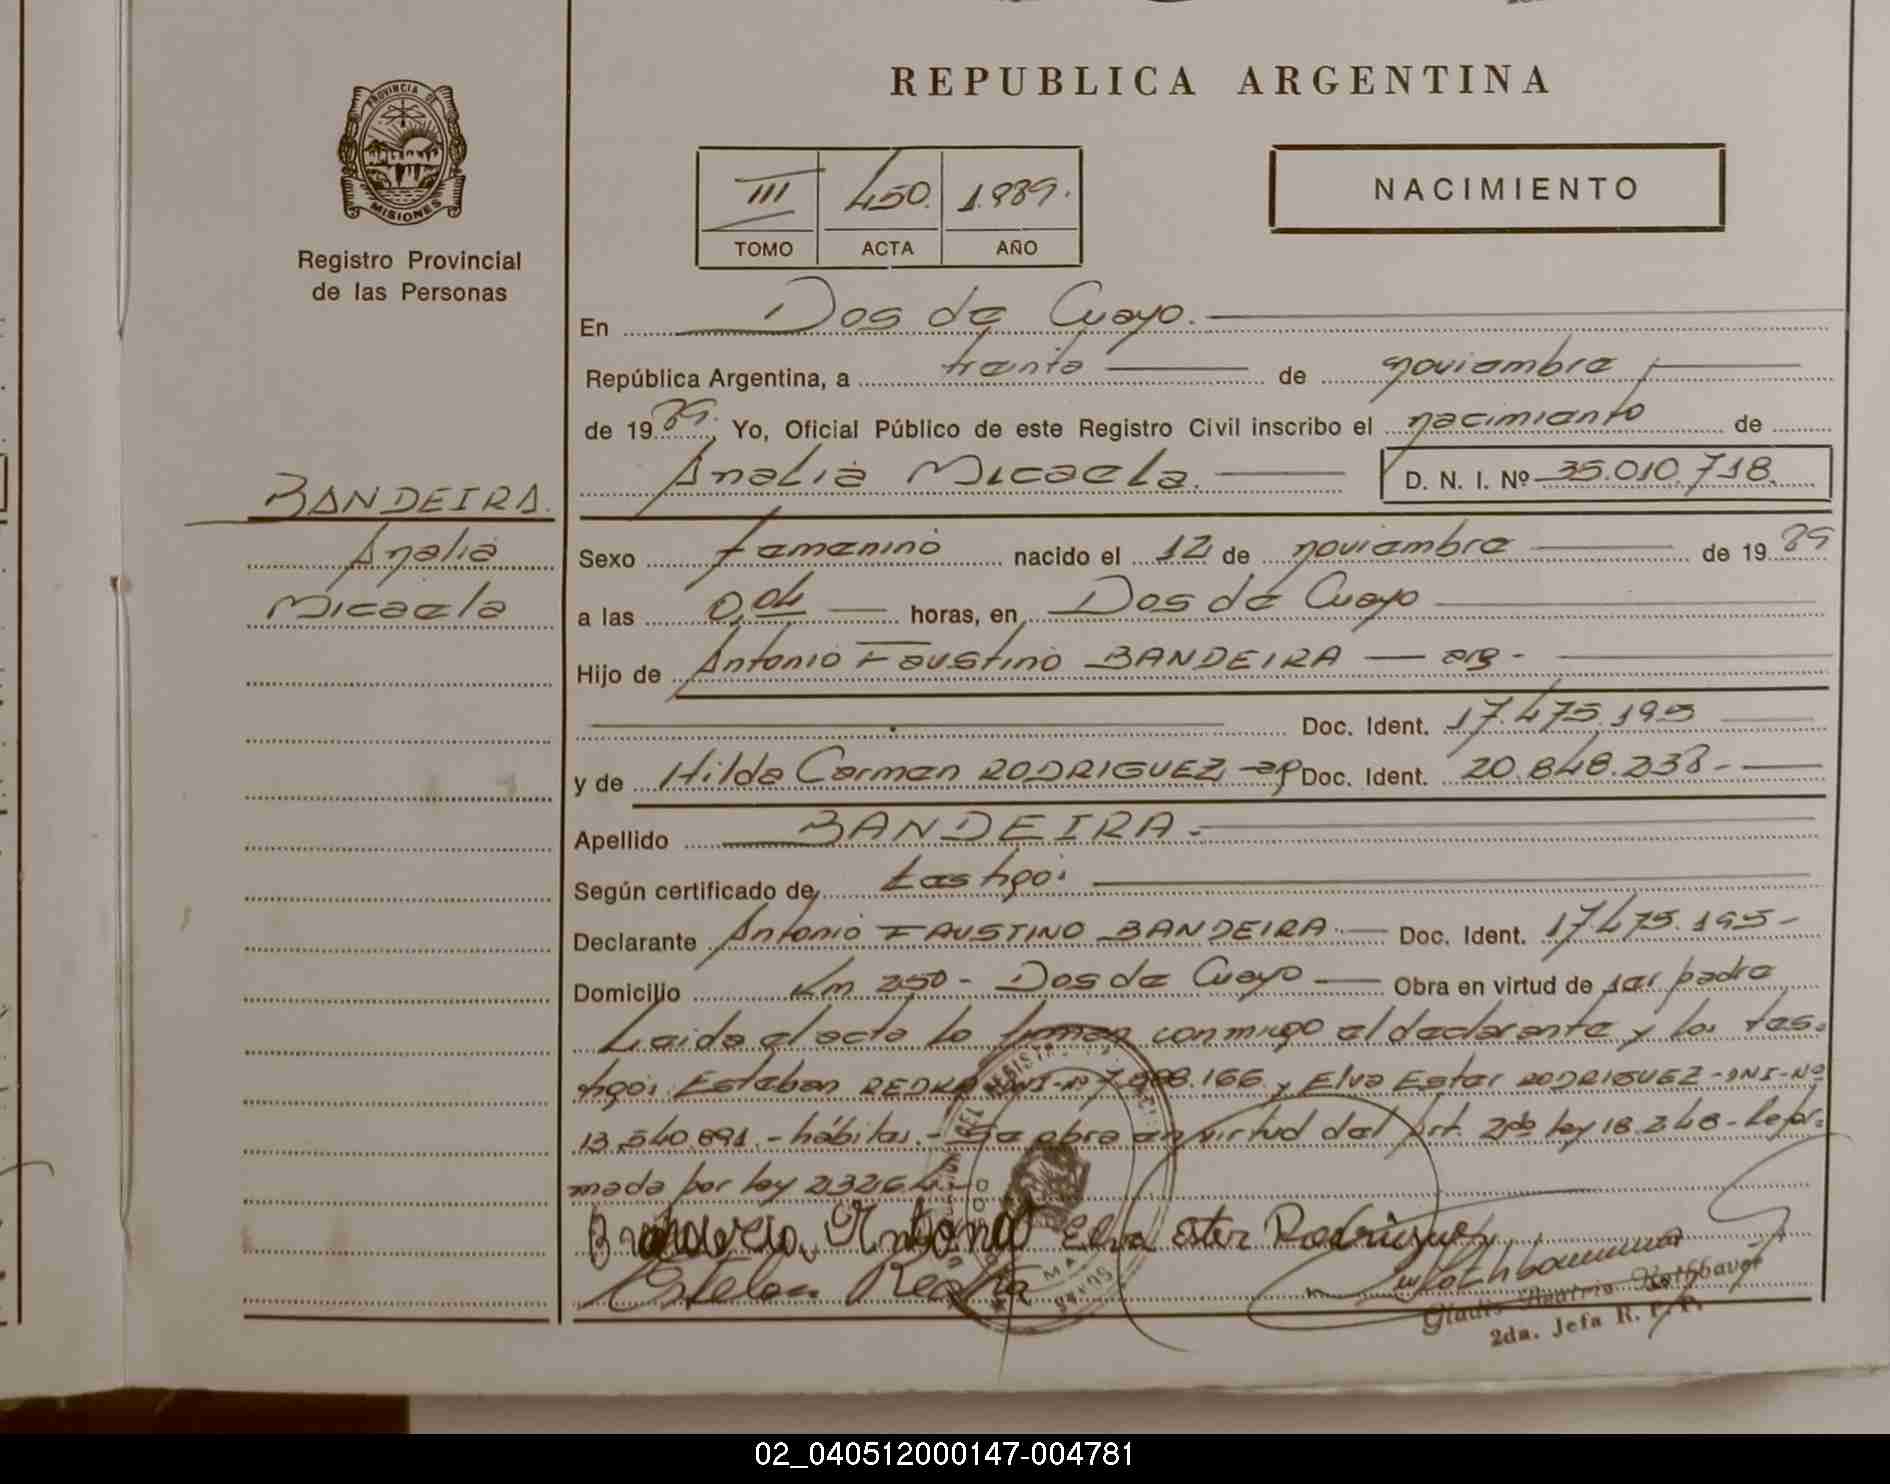 REPUBLICA ARGENTINA
PROVINCIA DE
MISIONES
Registro Provincial
de las Personas
III 450. 1.989.
TOMO ACTA AÑO
NACIMIENTO
En Dos de Mayo.
República Argentina, a treinta de noviembre
de 1989. Yo, Oficial Público de este Registro Civil inscribo el nacimiento de
Analia Micaela. D. N. I. Nº 35.010.718.
BANDEIRA.
Analia
Micaela
Sexo Femenino nacido el 12 de noviembre de 1989
a las 0,04 horas, en Dos de Mayo
Hijo de Antonio Faustino BANDEIRA - arg -
Doc. Ident. 17.475.195
y de Hilda Carmen RODRIGUEZ Doc. Ident. 20.848.238.-
Apellido BANDEIRA.-
Según certificado de, testigos
Declarante Antonio FAUSTINO BANDEIRA Doc. Ident. 17.475.195-
Domicilio Km 250 - Dos de Mayo Obra en virtud de ser padre
Leida el acta la firman conmigo el declarante y los tes-
tigos: Esteban DNI-Nº 166 y Elva Ester RODRIGUEZ-DNI-Nº
13.540.891.- hábiles.- Se obra en virtud del Art. 2do ley 18.248- Refor-
mada por ley 23264
Antonio Elva Ester Rodriguez
Esteban
Gladis Beatriz
2da. Jefa R. P. P.
02_040512000147-004781